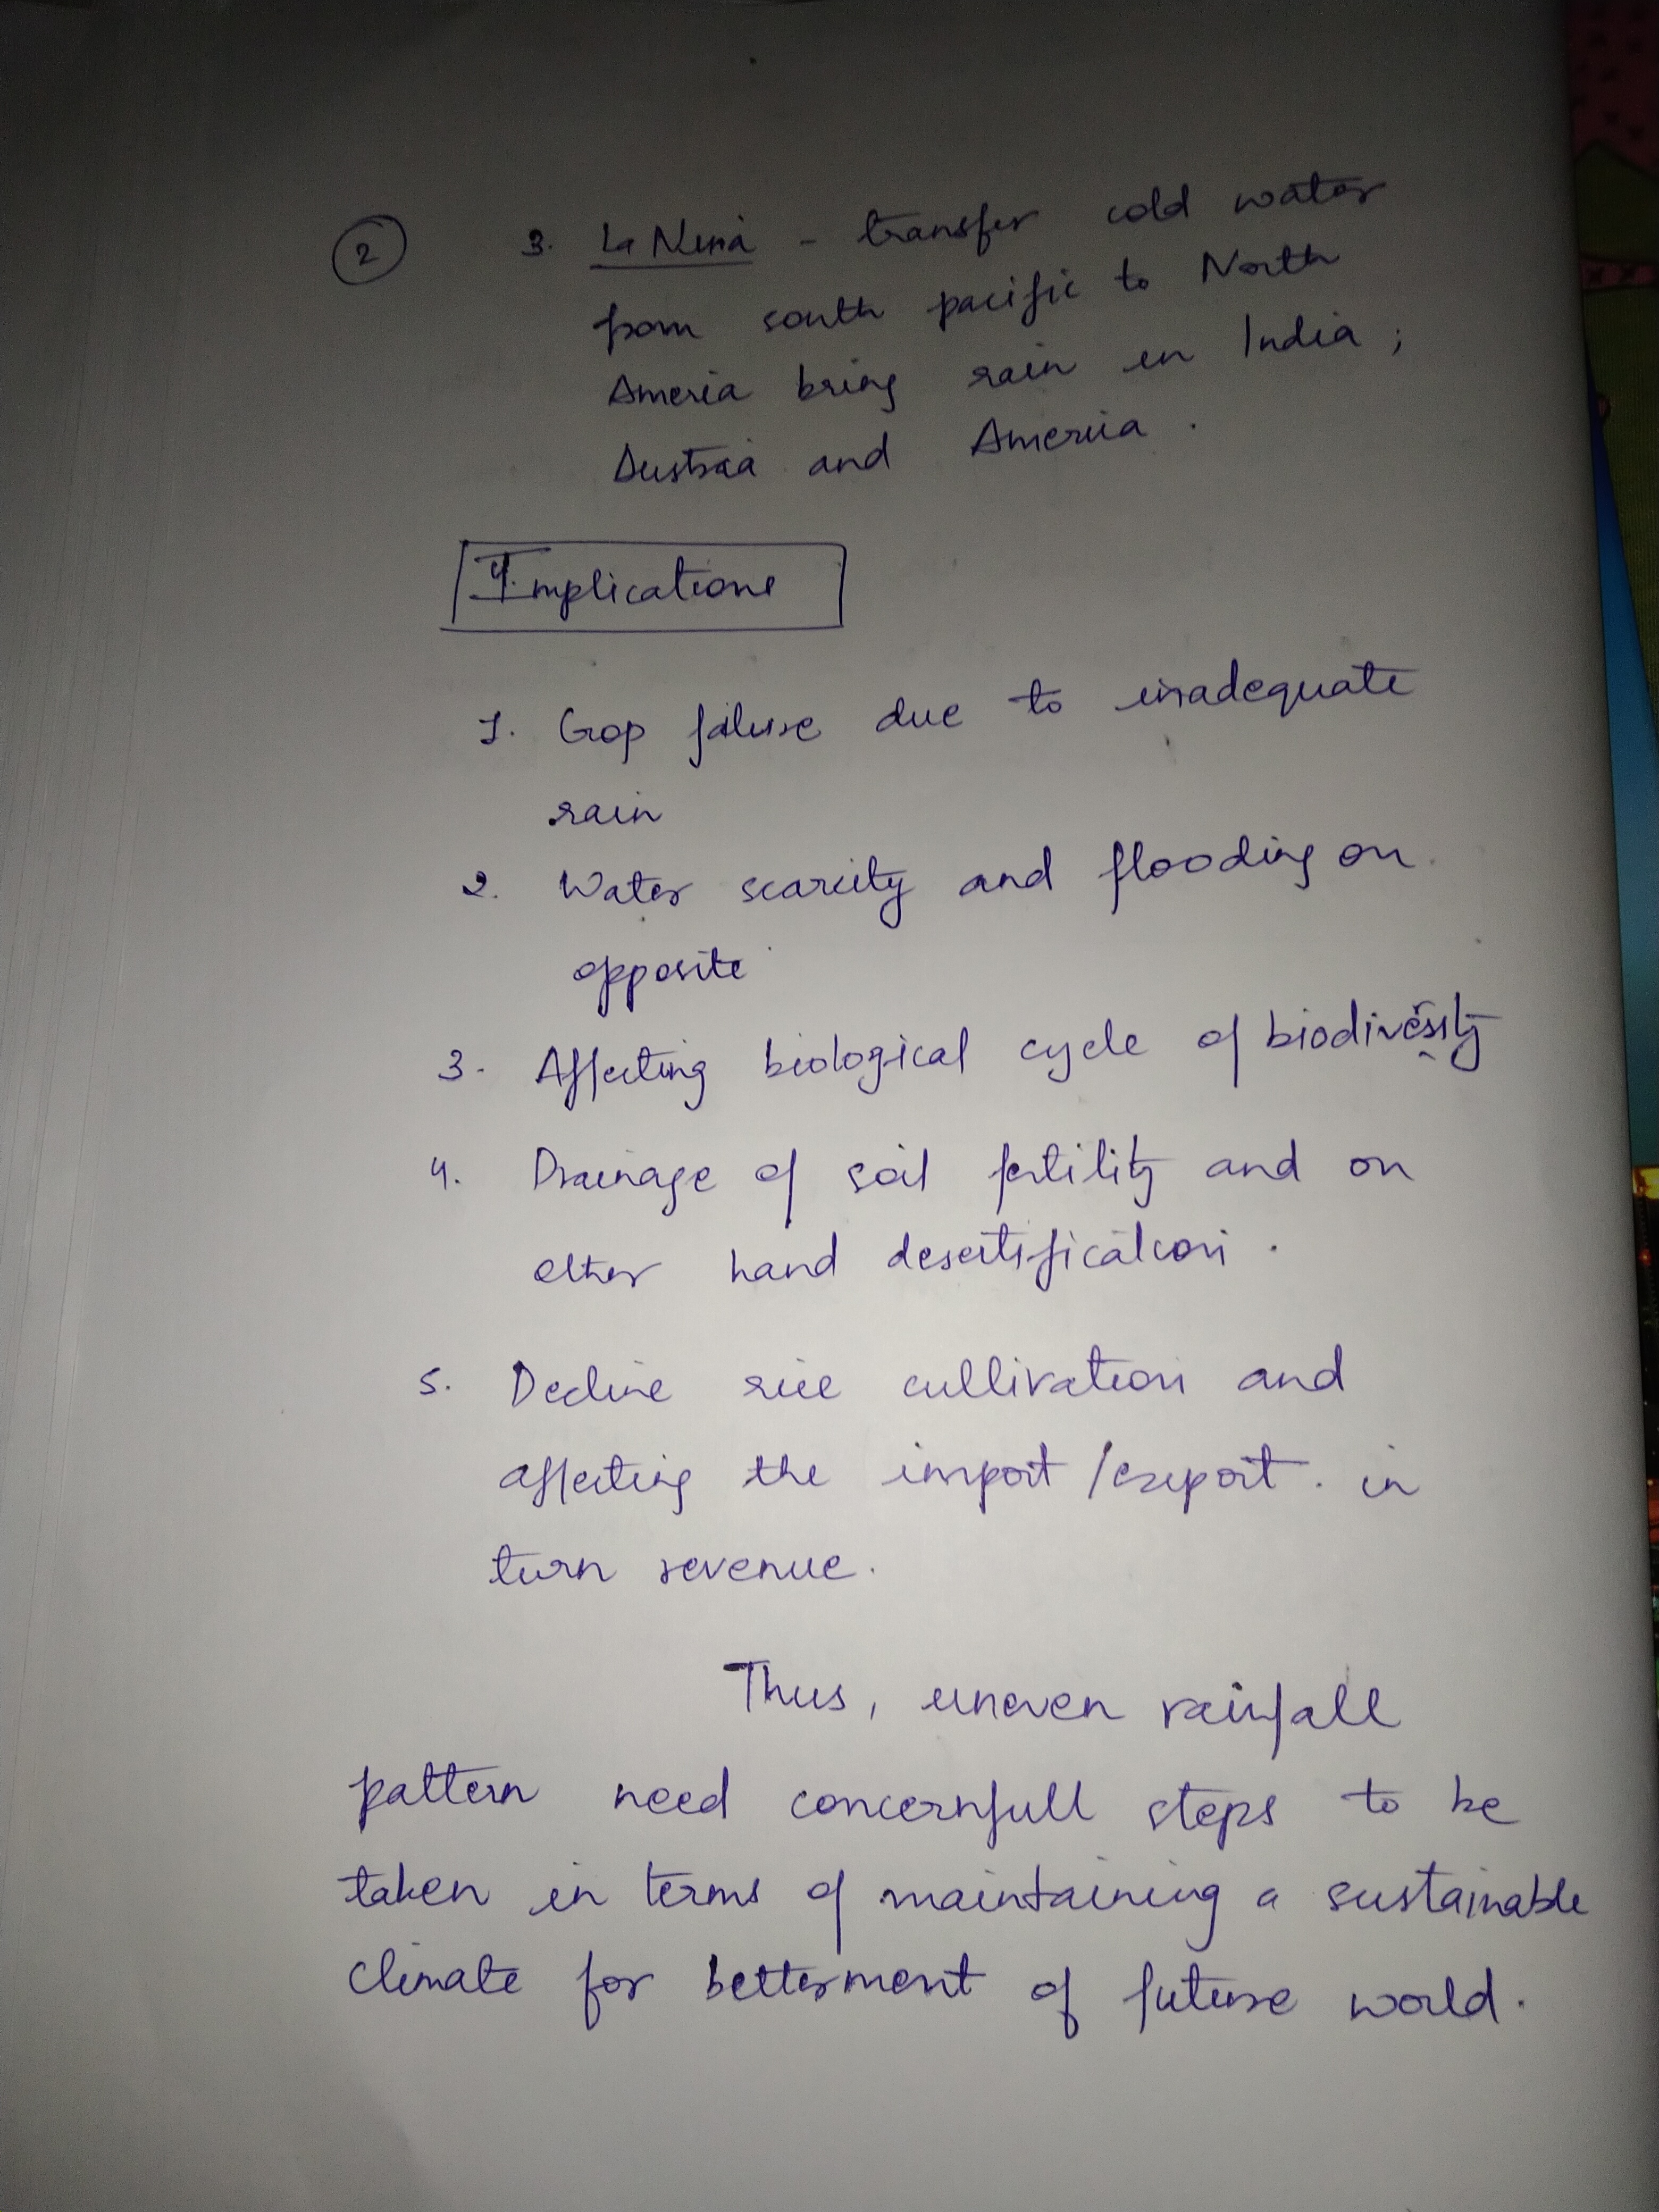 2
3. La Nina - transfer cold water
from south pacific to North
Ameria bring rain in India ;
and America .
4. Implications
1. Crop failure due to inadequate
rain
2. Water scarcity and flooding on
opposite
3. Affecting biological cycle of biodiversity
4. Drainage of soil fertility and on
other hand desertification .
5. Decline rice cultivation and
affecting the import /export . in
turn revenue .
Thus, uneven rainfall
pattern need concernfull steps to be
taken in terms of maintaining a sustainable
climate for betterment of future world .